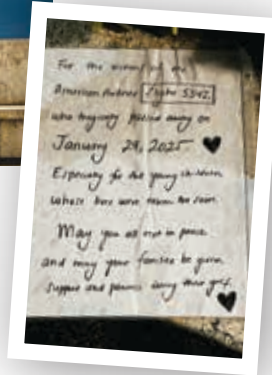 For the victims of the
American Airlines Flight 5342
who tragically passed away on
January 29, 2025
Especially for the young children
whose lives were taken too soon.
May you all rest in peace
and may your families be given
support and patience during their grief.